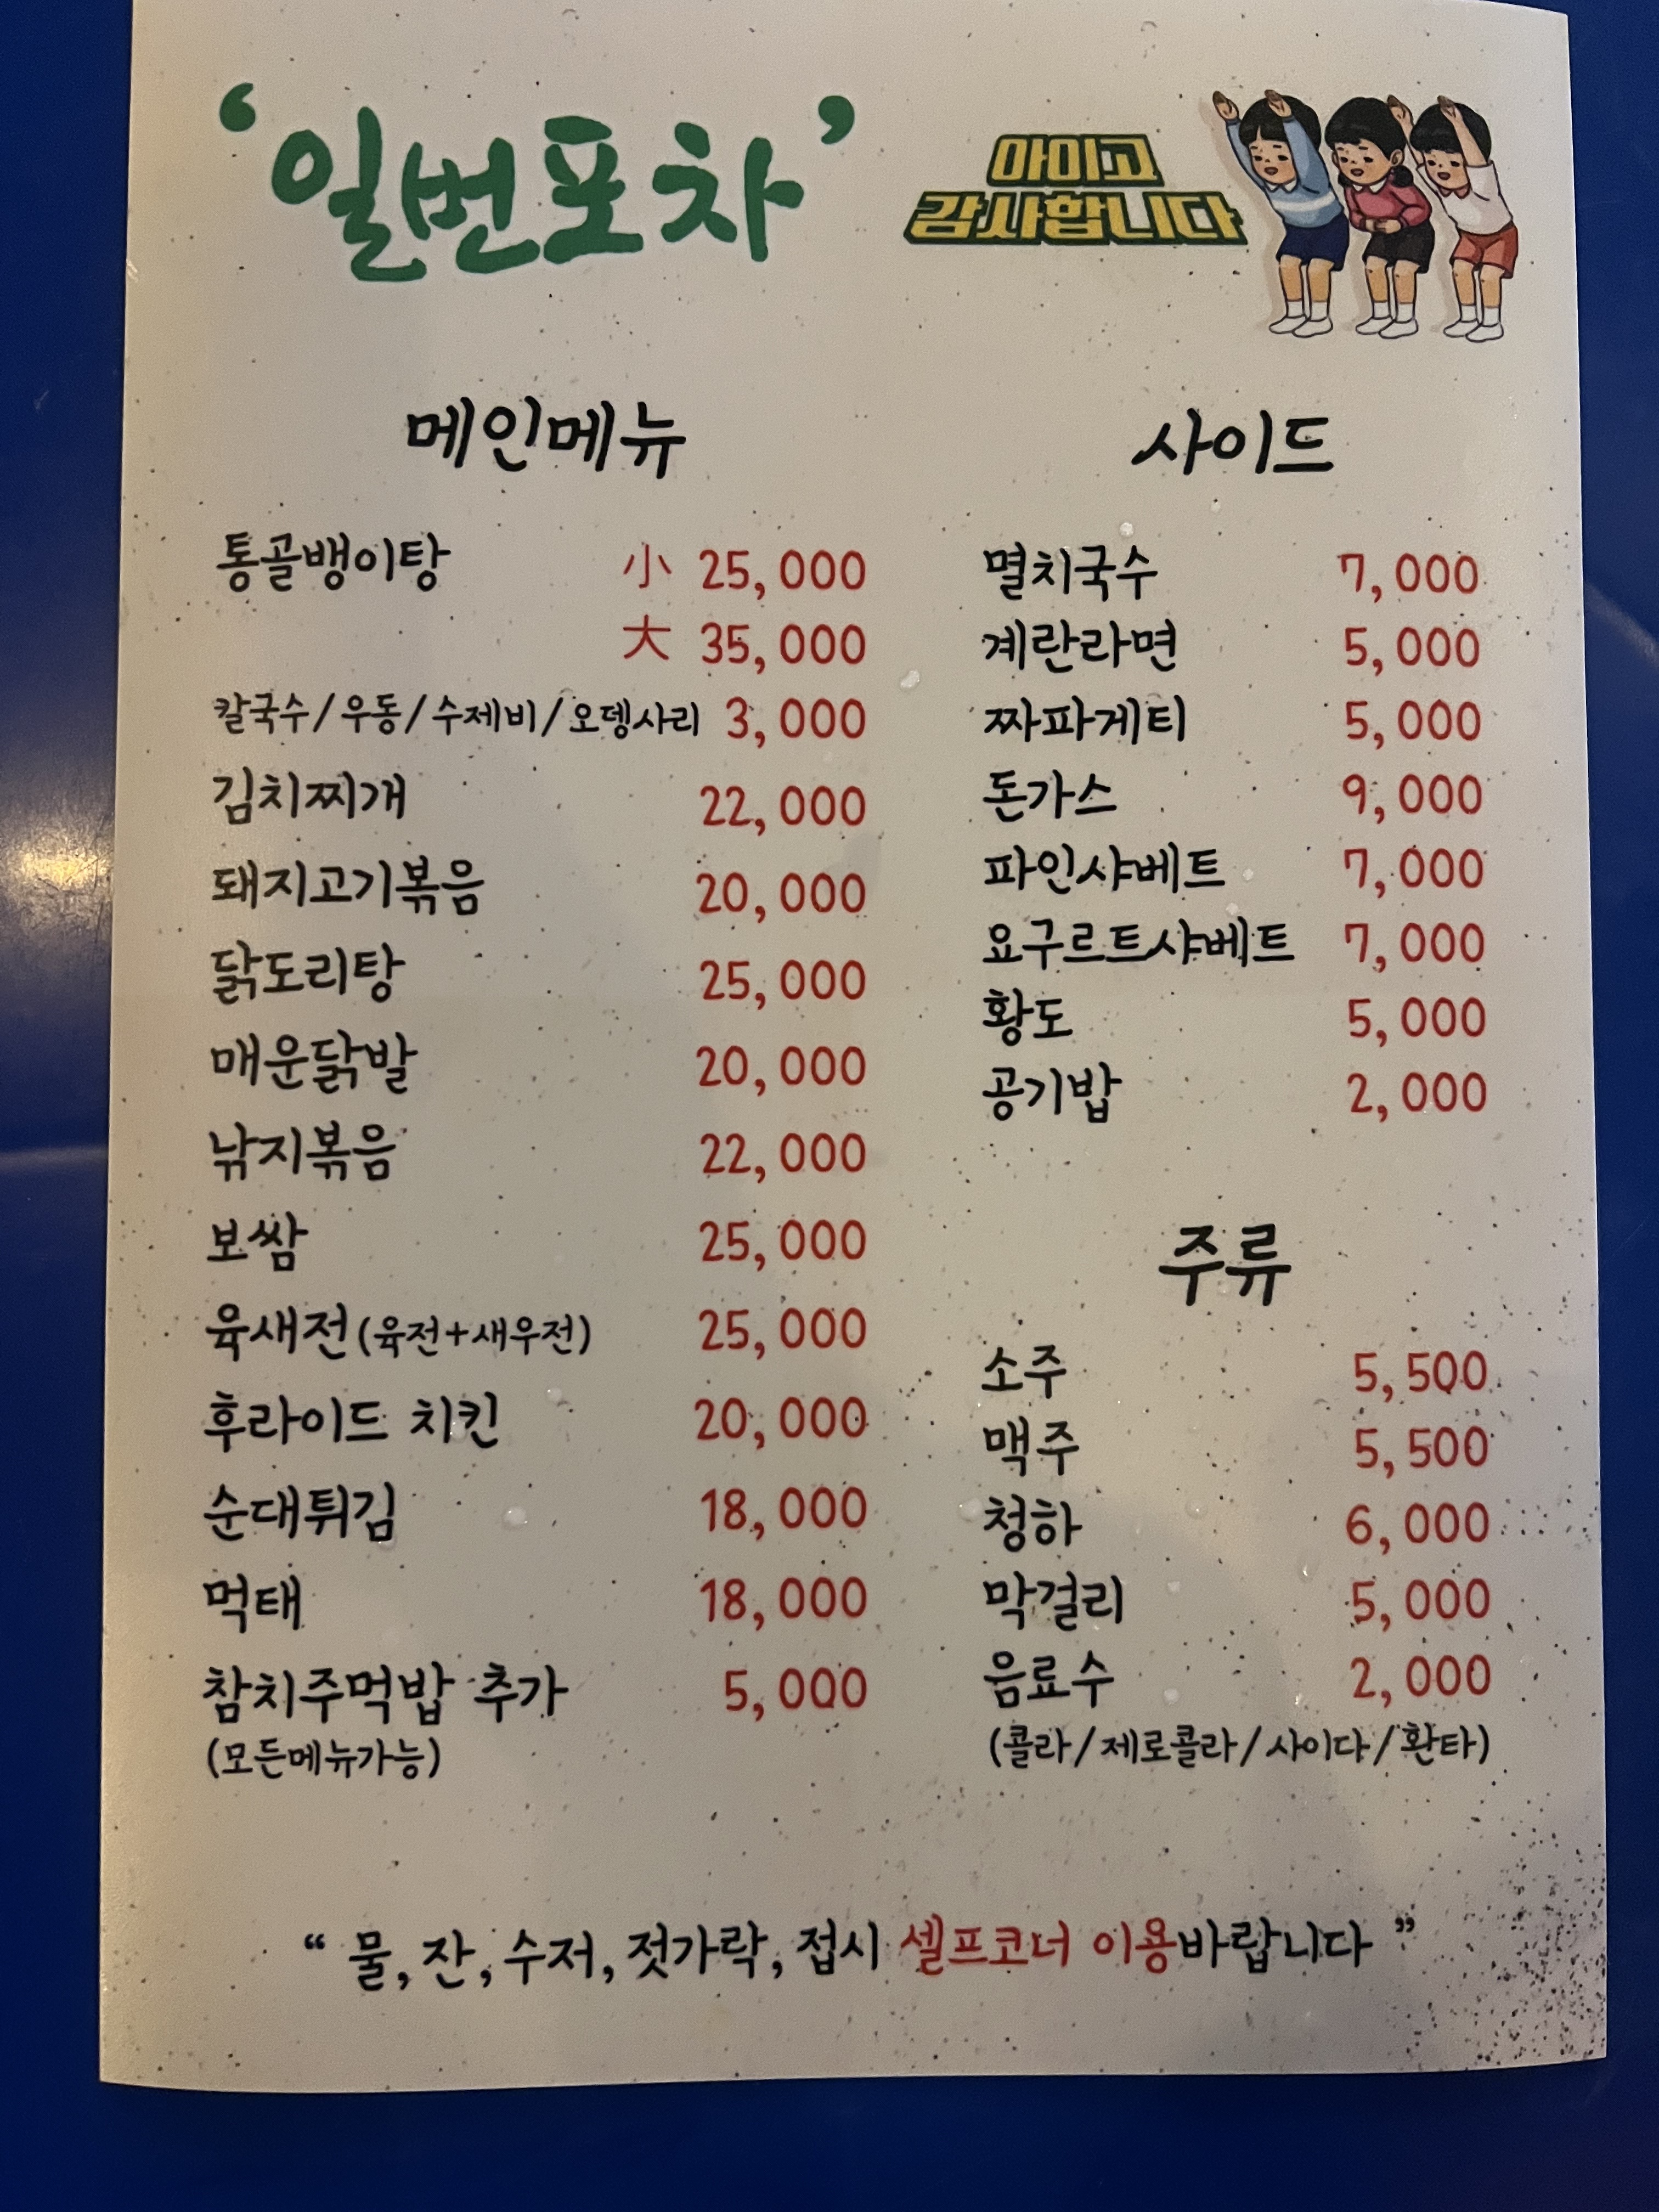 ‘일번포차’
아이고
감사합니다
메인메뉴
통골뱅이탕 小 25,000
大 35,000
칼국수/우동/수제비/오뎅사리 3,000
김치찌개 22,000
돼지고기볶음 20,000
닭도리탕 25,000
매운닭발 20,000
낚지볶음 22,000
보쌈 25,000
육새전(육전+새우전) 25,000
후라이드 치킨 20,000
순대튀김 18,000
먹태 18,000
참치주먹밥 추가 5,000
(모든메뉴가능)
사이드
멸치국수 7,000
계란라면 5,000
짜파게티 5,000
돈가스 9,000
파인샤베트 7,000
요구르트샤베트 7,000
황도 5,000
공기밥 2,000
주류
소주 5,500
맥주 5,500
청하 6,000
막걸리 5,000
음료수 2,000
(콜라/제로콜라/사이다/환타)
“ 물, 잔, 수저, 젓가락, 접시 셀프코너 이용바랍니다 ”